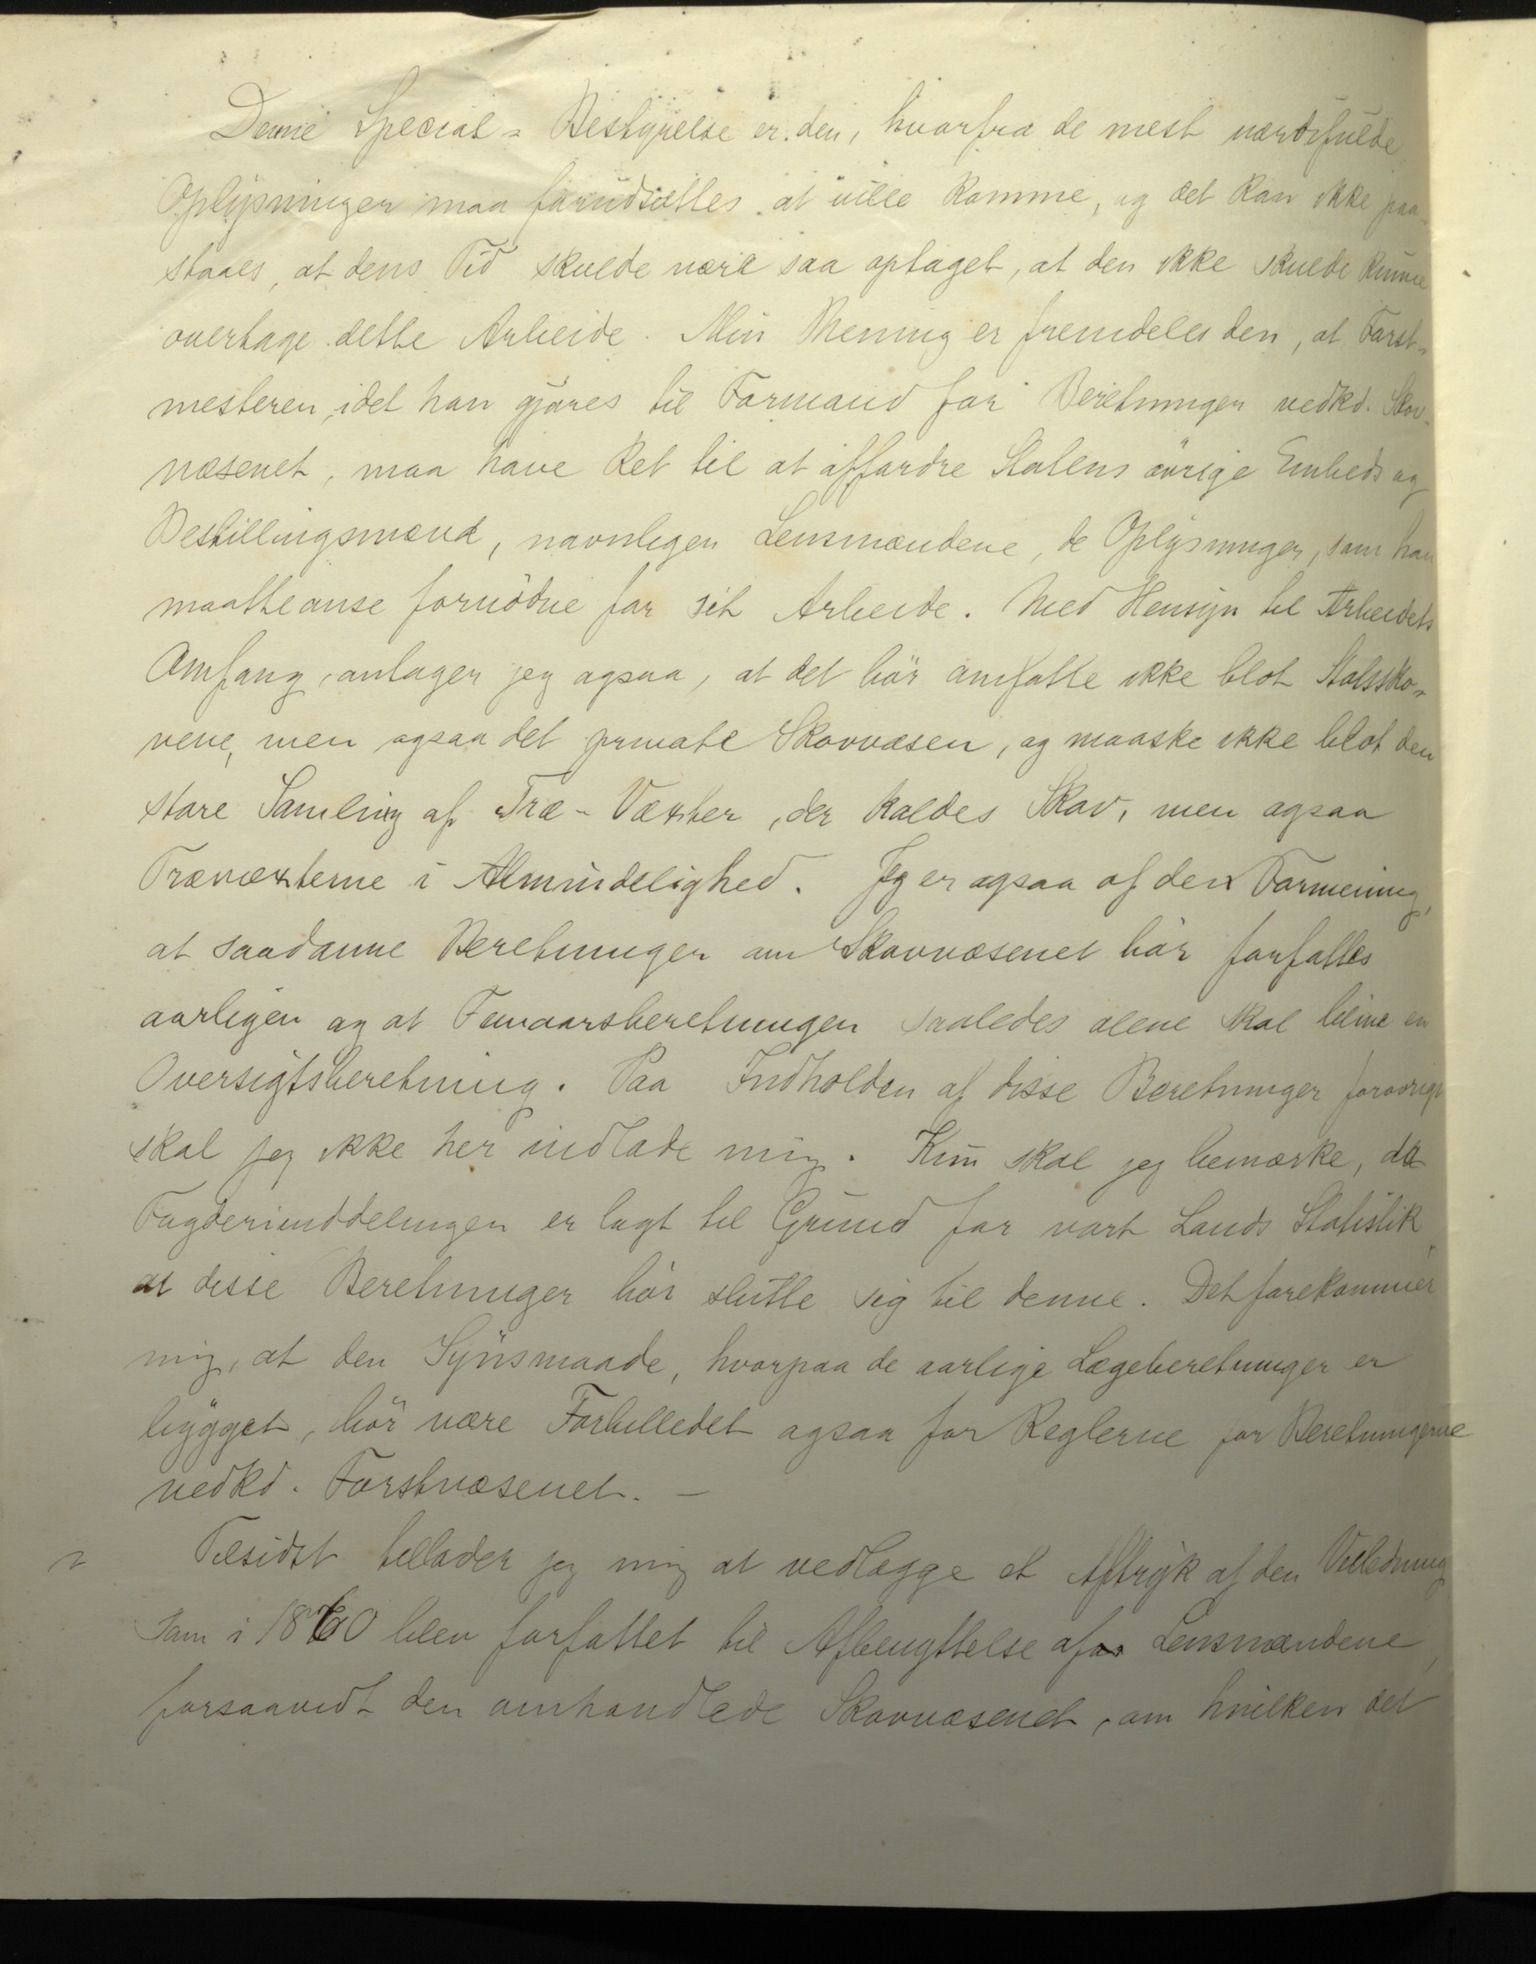 Denne Special-Bestyrelse er den, hvorfra de mest værdifulde
Oplysninger maa forudsættes at ville komme, og det kan ikke paa-
staaes, at dens Tid skulde være saa optaget, at den ikke skulde kunne
overtage dette Arbeide. Min Mening er fremdeles den, at Forst-
mesteren, idet han gjøres til Formand for Beretninger vedkd. Skov-
væsenet, maa have Ret til at affordre Statens øvrige Embeds og
Bestillingsmænd, navnligen Lensmændene, de Oplysninger, som han
maatte anse fornødne for sit Arbeide. Med Hensyn til Arbeidets
Omfang, antager jeg ogsaa, at det bør omfatte ikke blot Statssko-
vene, men ogsaa det private Skovvæsen, og maaske ikke blot den
store Samling af Træ-Væxter, der kaldes Skov, men ogsaa
Trævæxterne i Almindelighed. Jeg er ogsaa af den Formening,
at saadanne Beretninger om Skovvæsenet bør forfattes
aarligen og at Femaarsberetningen saaledes alene skal blive en
Oversigtsberetning. Paa Indholden af disse Beretninger forøvrigt
skal jeg ikke her indlade mig. Kun skal jeg bemærke, da
Fogderiinddelingen er lagt til Grund for vort Lands Statistik,
at disse Beretninger bør slutte sig til denne. Det forekommer
mig, at den Synsmaade, hvorpaa de aarlige Lægeberetninger er
bygget, bør være Forbilledet ogsaa for Reglerne for Beretningerne
vedkd. Forstvæsenet. –
Tilsidst tillader jeg mig at vedlægge et Aftryk af den Veiledning
som i 1860 blev forfattet til Afbenyttelse af Lensmændene,
forsaavidt den omhandlede Skovvæsenet, om hvilken det